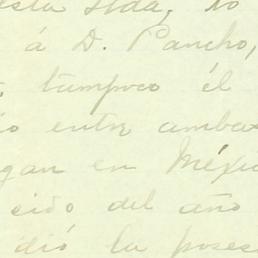 esta Hda; No
á D. Pancho,
tampoco él
entre ambas
gan en Méxi
cido del año
dió la poses